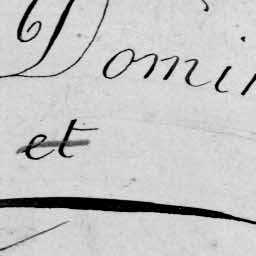 Domin
et